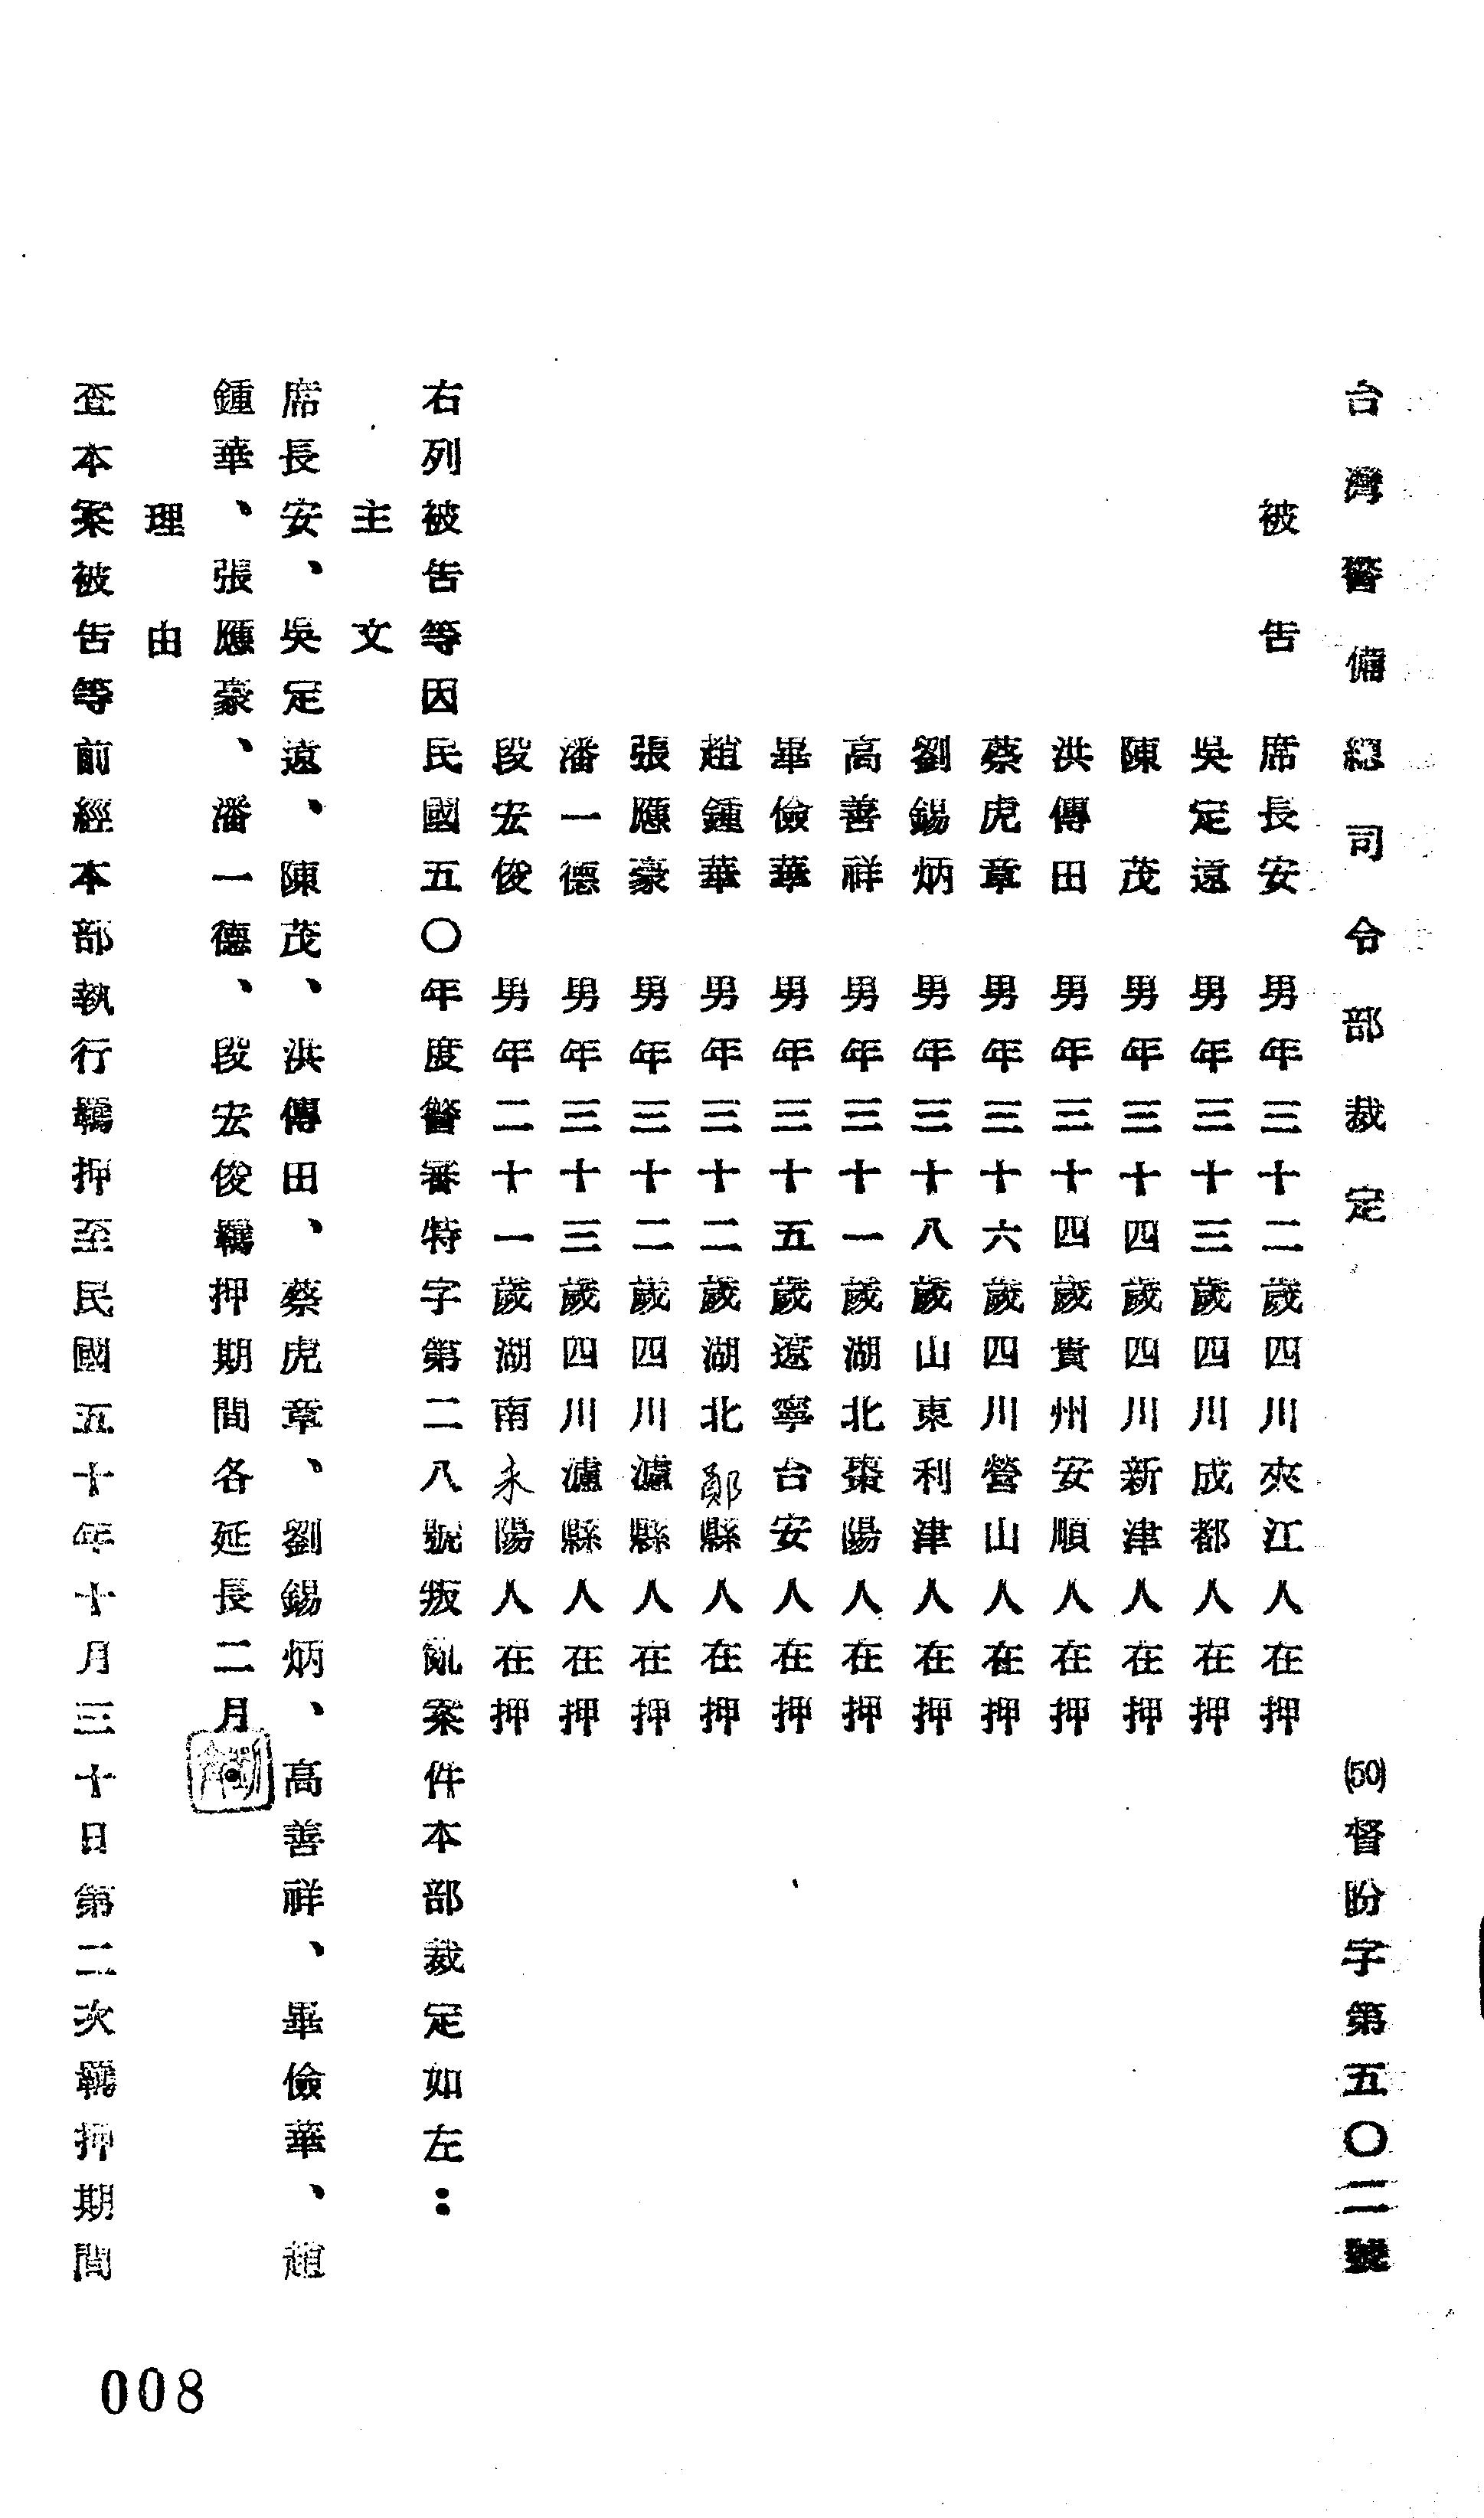 台灣警備總司令部裁定 (50)督盼字第五〇二號
被告 席長安 男年三十二歲四川夾江人在押
吳定遠 男年三十三歲四川成都人在押
陳 茂 男年三十四歲四川新津人在押
洪傳田 男年三十四歲貴州安順人在押
蔡虎章 男年三十六歲四川營山人在押
劉錫炳 男年三十八歲山東利津人在押
高善祥 男年三十一歲湖北棗陽人在押
畢儉華 男年三十五歲遼寧台安人在押
趙鍾華 男年三十二歲湖北鄖縣人在押
張應豪 男年三十二歲四川瀘縣人在押
潘一德 男年三十三歲四川瀘縣人在押
段宏俊 男年二十一歲湖南耒陽人在押
右列被告等因民國五〇年度警審特字第二八號叛亂案件本部裁定如左：
主文
席長安、吳定遠、陳茂、洪傳田、蔡虎章、劉錫炳、高善祥、畢儉華、趙
鍾華、張應豪、潘一德、段宏俊羈押期間各延長二月
理由
查本案被告等前經本部執行羈押至民國五十年十月三十日第二次羈押期間
008